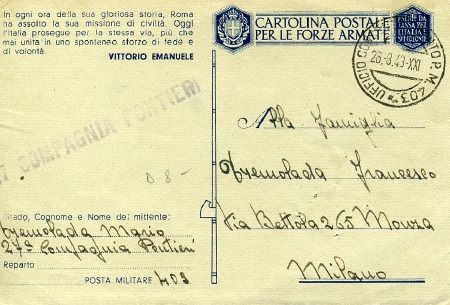 In ogni ora della sua gloriosa storia, Roma
ha assolto la sua missione di civiltà. Oggi
l'Italia prosegue per la stessa via, più che
mai unita in uno spontaneo sforzo di fede e
di volontà.
VITTORIO EMANUELE
CARTOLINA POSTALE
PER LE FORZE ARMATE
ESENTE DA
TASSA PER
L'ITALIA E
SPEDIZIONE
UFFICIO P.M. 403
26.-8.43-XXI
COMPAGNIA PONTIERI
D 8 -
Alla Famiglia
Tremolada Francesco
Via Bettola 265 Monza
Milano
Grado, Cognome e Nome del mittente:
Tremolada Mario
27ª Compagnia Pontieri
Reparto
POSTA MILITARE 403